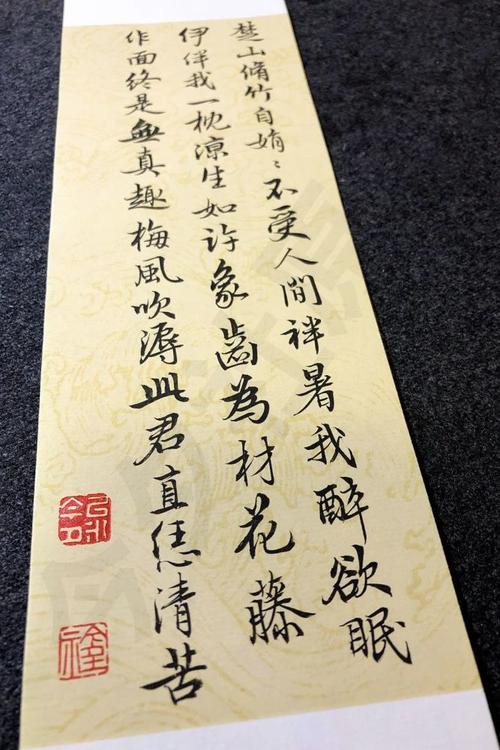 楚山脩竹自娟〻不受人間袢暑我醉欲眠
伊伴我一枕凉生如许象齒為材花藤
作面终是無真趣梅風吹溽此君直恁清苦